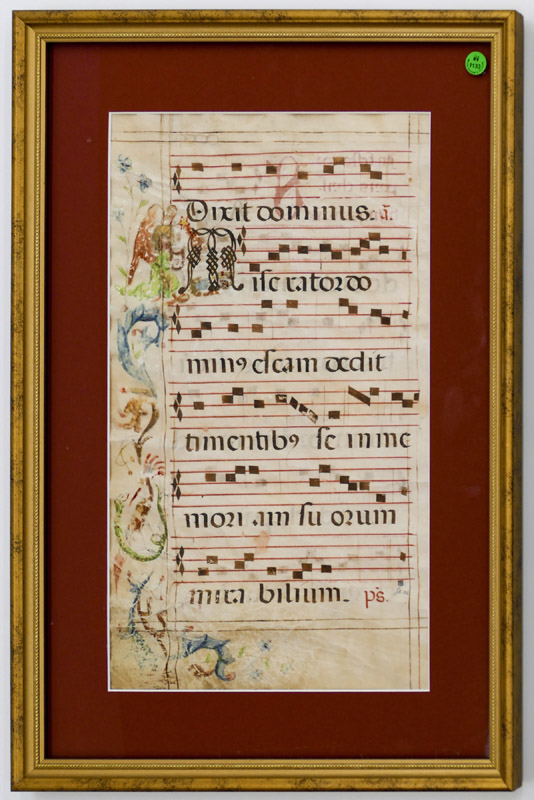 Dixit dominus. añ.
Miserator do
minꝰ escam dedit
timentibꝰ se in me
moriam suorum
mirabilium. ps.